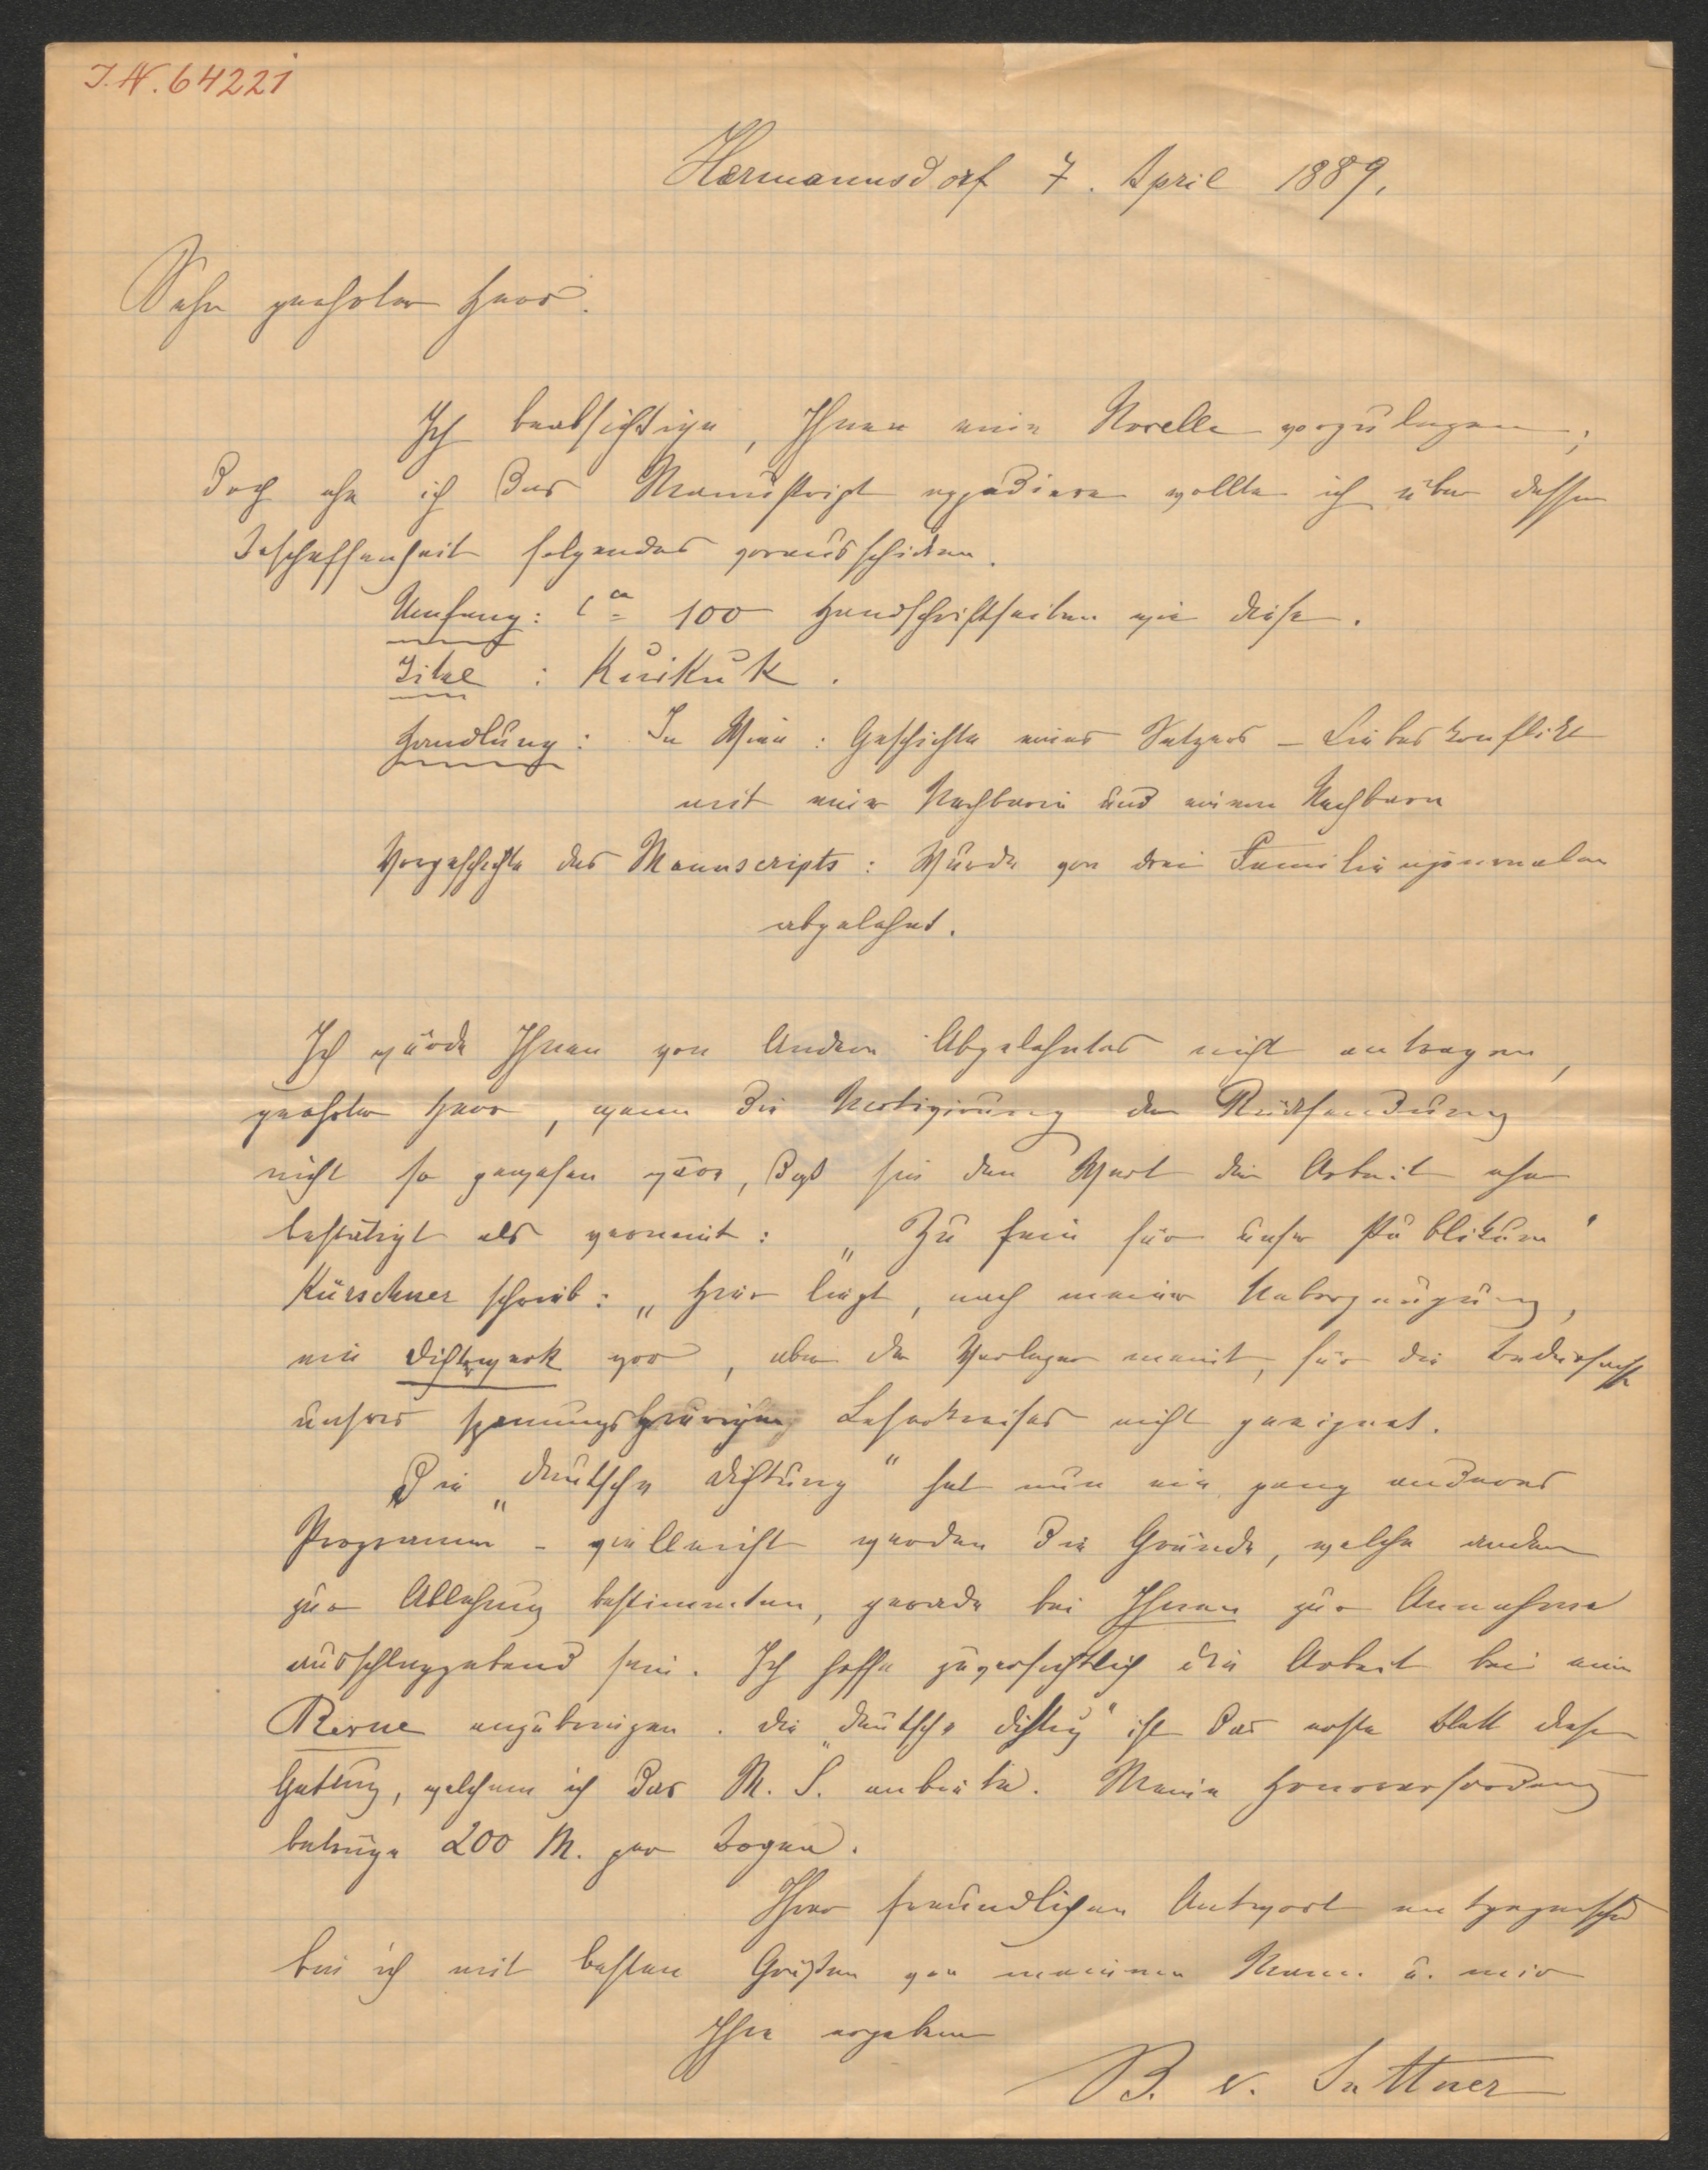 J.N. 64221
Hermannsdorf 7. April 1889.
Sehr geehrter Herr.
Ich beabsichtige, Ihnen eine Novelle vorzulegen;
doch ehe ich das Manuskript expediere wollte ich über dessen
Beschaffenheit folgendes vorausschicken.
Umfang: Ca 100 Handschriftseiten wie diese.
Titel : Kuikuk.
Handlung: In Wien: Geschichte eines Setzers – Liebeskonflikt
mit einer Nachbarin und einem Nachbarn
Vorgeschichte des Manuscripts: Wurde von drei Familienjournalen
abgelehnt.
Ich würde Ihnen von Andern Abgelehntes nicht antragen,
geehrter Herr, wenn die Motivirung der Rücksendung
nicht so gewesen wäre, daß sie den Wert der Arbeit eher
bestätigt als verneint: „Zu fein für unser Publikum"
Kürschner schrieb: „Hier liegt, nach meiner Ueberzeugung,
ein Dichtwerk vor, aber der Verleger meint, für die Bedürfnisse
unseres spannungshungrigen Leserkreises nicht geeignet.
Die „Deutsche Dichtung" hat nun ein ganz anderes
Programm – vielleicht werden die Gründe, welche andere
zur Ablehnung bestimmten, gerade bei Ihnen zur Annahme
ausschlaggebend sein. Ich hoffe zuversichtlich die Arbeit bei einer
Revue anzubringen. Die „Deutsche Dichtung" ist das erste Blatt dieser
Gattung, welchem ich das M. S. anbiete. Meine Honorarforderung
betrüge 200 M. per Bogen.
Ihrer freundlichen Antwort entgegensehend
bin ich mit besten Grüßen von meinem Mann u. mir
Ihre ergebene
B. v. Suttner